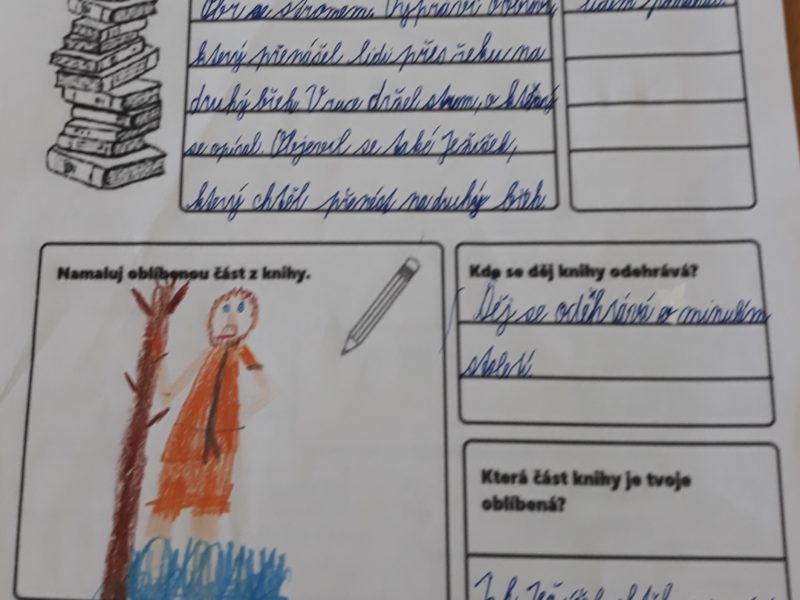 Obr se stromem. Vypráví
lidem
který přenášel lidi přes řeku na
druhý břeh. V ruce držel strom, o který
se opíral. Objevil se také Ježíšek,
který chtěl přenést na druhý břeh
Namaluj oblíbenou část z knihy.
Kde se děj knihy odehrává?
Děj se odehrává v minulém
století.
Která část knihy je tvoje
oblíbená?